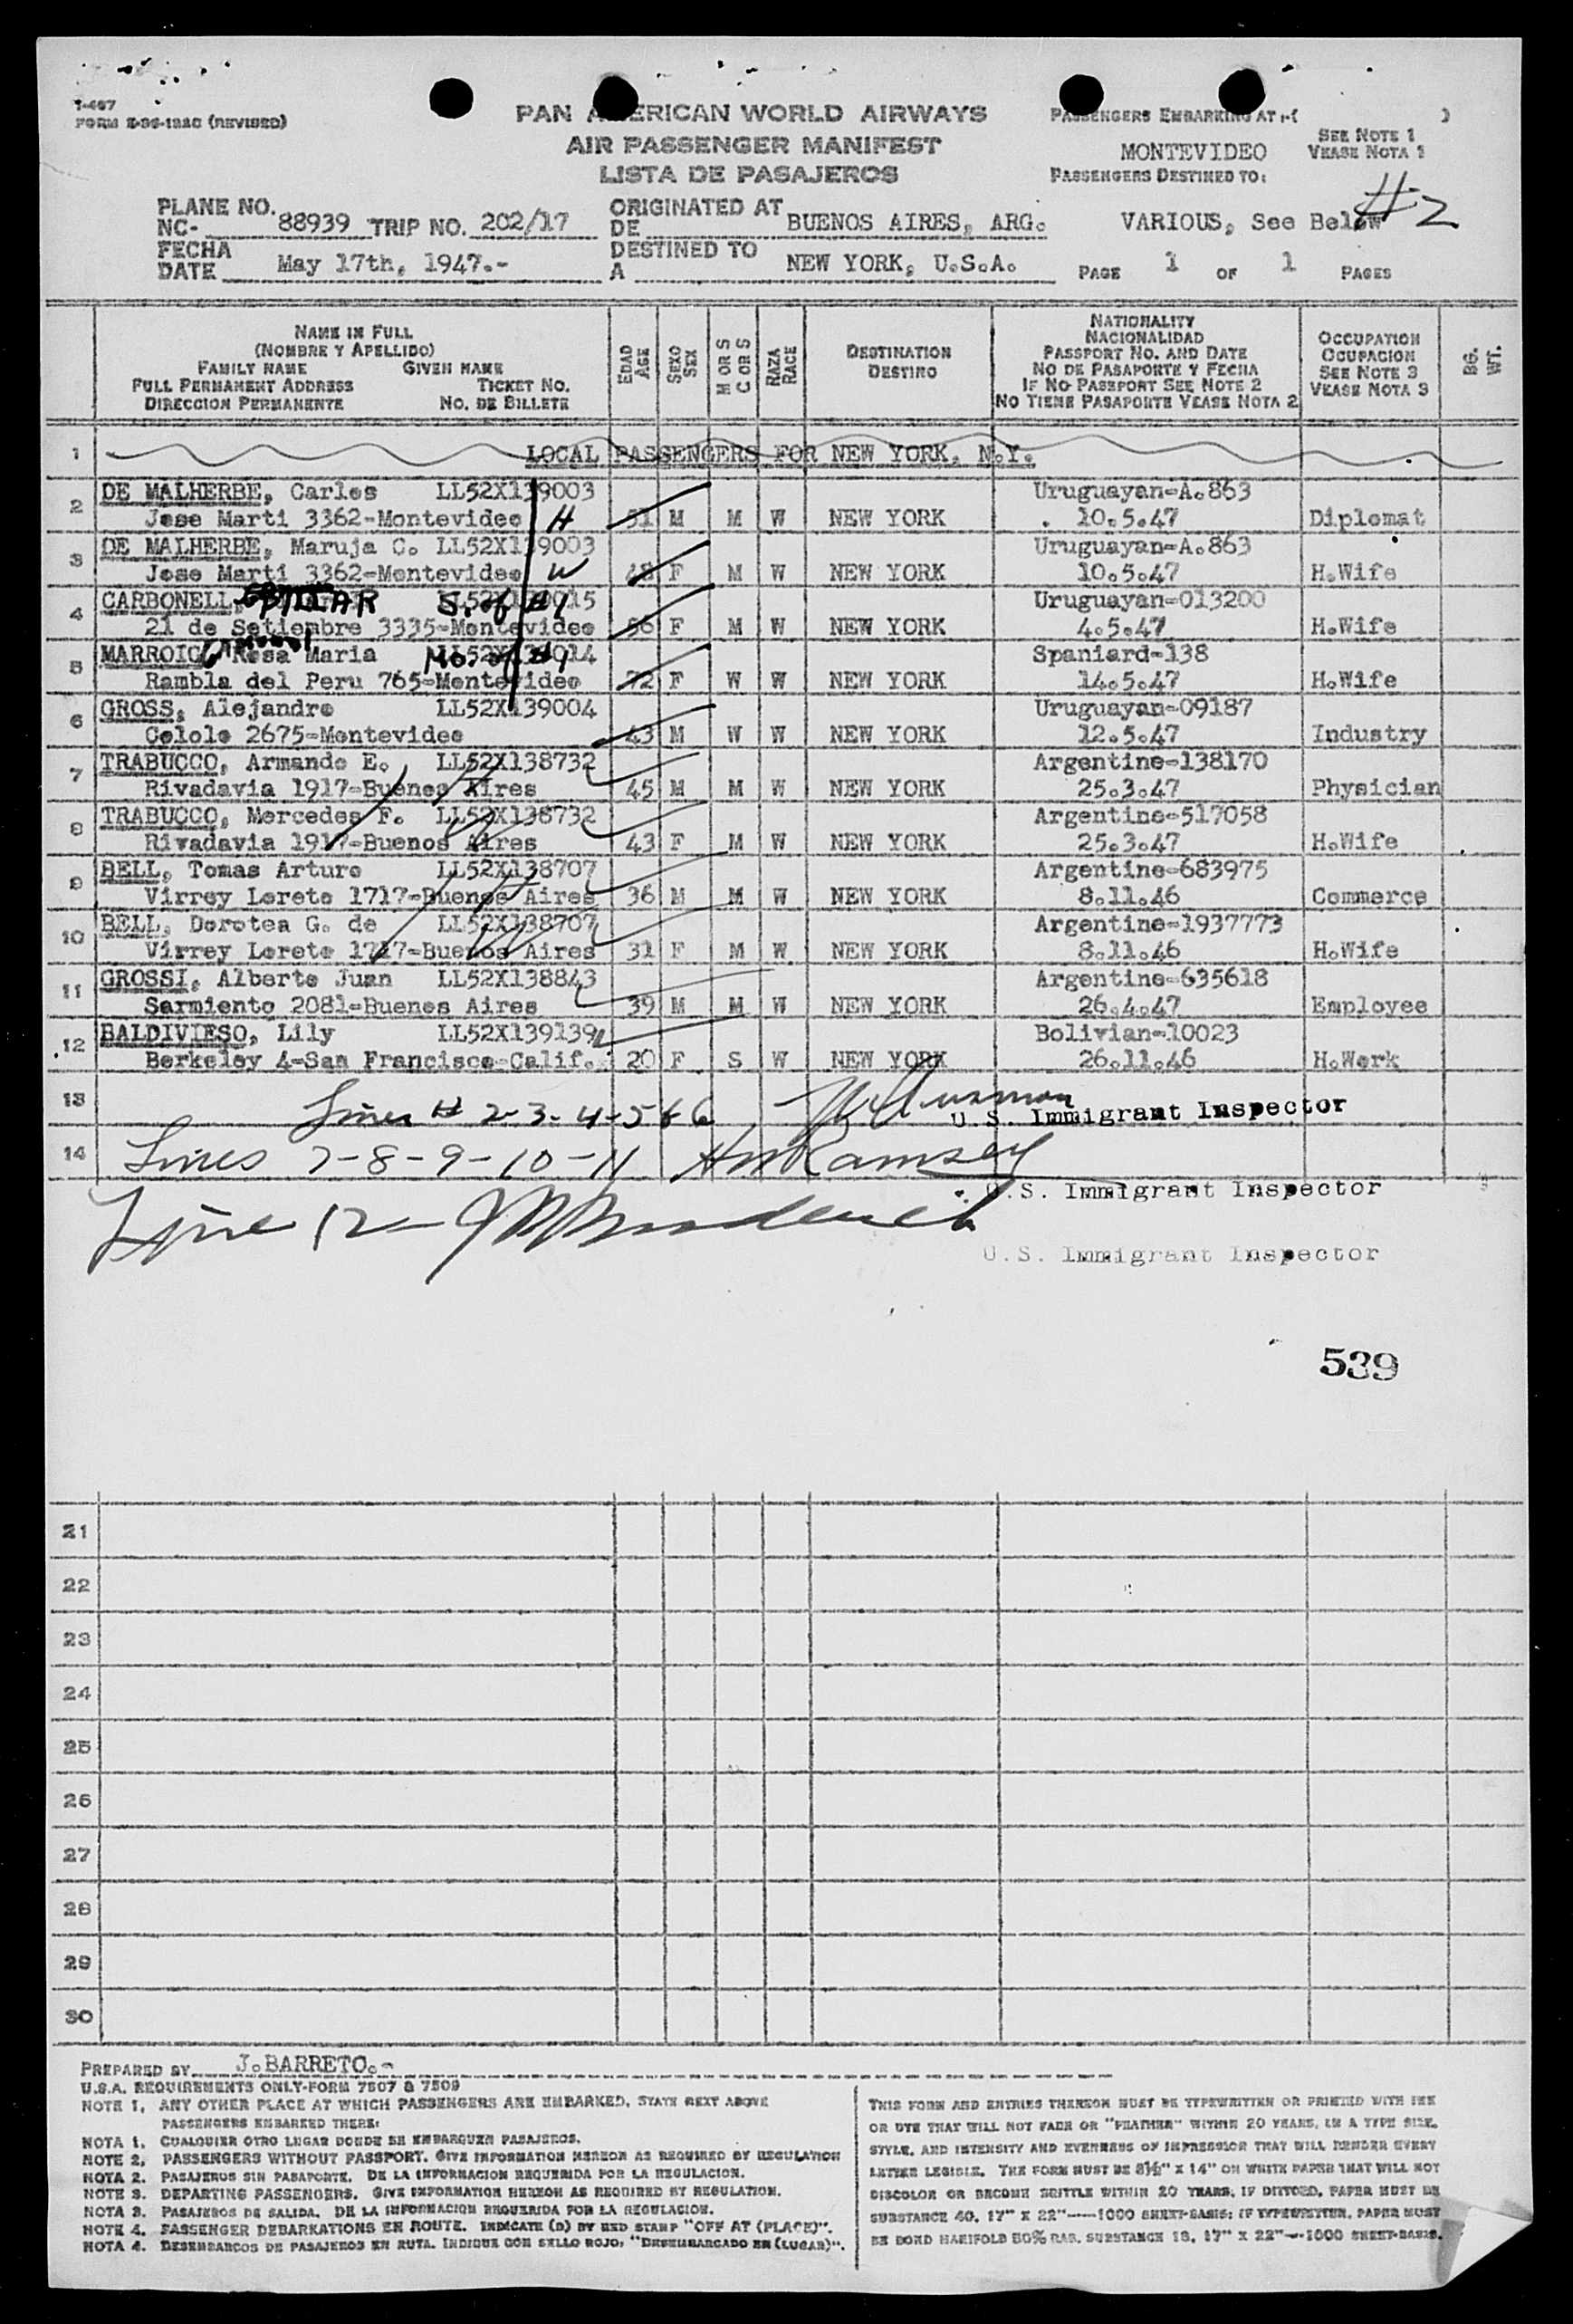 I-467
FORM E-36-122C (REVISED)
PAN AMERICAN WORLD AIRWAYS
AIR PASSENGER MANIFEST
LISTA DE PASAJEROS
PASSENGERS EMBARKING AT :-( )
MONTEVIDEO
SEE NOTE 1
VEASE NOTA 1
PASSENGERS DESTINED TO:
#2
VARIOUS, See Below
PLANE NO.
NC- 88939 TRIP NO. 202/17
ORIGINATED AT
DE BUENOS AIRES, ARG.
FECHA
DATE May 17th, 1947.-
DESTINED TO
A NEW YORK, U.S.A.
PAGE 1 OF 1 PAGES
NAME IN FULL
(NOMBRE Y APELLIDO)
FAMILY NAME GIVEN NAME
FULL PERMANENT ADDRESS TICKET NO.
DIRECCION PERMANENTE NO. DE BILLETE
EDAD AGE
SEXO SEX
M OR S C OR S
RAZA RACE
DESTINATION
DESTINO
NATIONALITY
NACIONALIDAD
PASSPORT NO. AND DATE
NO DE PASAPORTE Y FECHA
IF NO PASSPORT SEE NOTE 2
NO TIENE PASAPORTE VEASE NOTA 2
OCCUPATION
OCUPACION
SEE NOTE 3
VEASE NOTA 3
BG. WT.
1 LOCAL PASSENGERS FOR NEW YORK, N.Y.
2 DE MALHERBE, Carlos LL52X139003 Uruguayan-A.863
Jose Marti 3362-Montevideo H 51 M M W NEW YORK 10.5.47 Diplomat
3 DE MALHERBE, Maruja C. LL52X139003 Uruguayan-A.863
Jose Marti 3362-Montevideo W 48 F M W NEW YORK 10.5.47 H.Wife
4 CARBONELL, PILAR S. of #1 Uruguayan-013200
21 de Setiembre 3335-Montevideo 56 F M W NEW YORK 4.5.47 H.Wife
5 MARROIG Rosa Maria Mo. of #1 Spaniard-138
Rambla del Peru 765-Montevideo 72 F W W NEW YORK 14.5.47 H.Wife
6 GROSS, Alejandro LL52X139004 Uruguayan-09187
Celolo 2675-Montevideo 43 M W W NEW YORK 12.5.47 Industry
7 TRABUCCO, Armando E. LL52X138732 Argentine-138170
Rivadavia 1917-Buenos Aires 45 M M W NEW YORK 25.3.47 Physician
8 TRABUCCO, Mercedes F. LL52X138732 Argentine-517058
Rivadavia 1917-Buenos Aires 43 F M W NEW YORK 25.3.47 H.Wife
9 BELL, Tomas Arturo LL52X138707 Argentine-683975
Virrey Loreto 1717-Buenos Aires 36 M M W NEW YORK 8.11.46 Commerce
10 BELL, Dorotea G. de LL52X138707 Argentine-1937773
Virrey Loreto 1717-Buenos Aires 31 F M W NEW YORK 8.11.46 H.Wife
11 GROSSI, Alberto Juan LL52X138843 Argentine-635618
Sarmiento 2081-Buenos Aires 39 M M W NEW YORK 26.4.47 Employee
12 BALDIVIESO, Lily LL52X139139 Bolivian-10023
Berkeley 4-San Francisco-Calif. 20 F S W NEW YORK 26.11.46 H.Work
13 Lines # 2-3-4-5 & 6
U.S. Immigrant Inspector
14 Lines 7-8-9-10-11 Ramsey
U.S. Immigrant Inspector
Line 12-
U.S. Immigrant Inspector
539
21
22
23
24
25
26
27
28
29
30
PREPARED BY J.BARRETO.-
U.S.A. REQUIREMENTS ONLY-FORM 7507 & 7509
NOTE 1. ANY OTHER PLACE AT WHICH PASSENGERS ARE EMBARKED, STATE NEXT ABOVE
PASSENGERS EMBARKED THERE:
NOTA 1. CUALQUIER OTRO LUGAR DONDE SE EMBARQUEN PASAJEROS.
NOTE 2. PASSENGERS WITHOUT PASSPORT. GIVE INFORMATION HEREON AS REQUIRED BY REGULATION
NOTA 2. PASAJEROS SIN PASAPORTE. DE LA INFORMACION REQUERIDA POR LA REGULACION.
NOTE 3. DEPARTING PASSENGERS. GIVE INFORMATION HEREON AS REQUIRED BY REGULATION.
NOTA 3. PASAJEROS DE SALIDA. DE LA INFORMACION REQUERIDA POR LA REGULACION.
NOTE 4. PASSENGER DEBARKATIONS EN ROUTE. INDICATE (D) BY RED STAMP "OFF AT (PLACE)".
NOTA 4. DESEMBARCOS DE PASAJEROS EN RUTA. INDIQUE CON SELLO ROJO, "DESEMBARCADO EN (LUGAR)".
THIS FORM AND ENTRIES THEREON MUST BE TYPEWRITTEN OR PRINTED WITH INK
OR DYE THAT WILL NOT FADE OR "FEATHER" WITHIN 20 YEARS, IN A TYPE SIZE,
STYLE, AND INTENSITY AND EVENNESS OF IMPRESSION THAT WILL RENDER EVERY
LETTER LEGIBLE. THE FORM MUST BE 8½" X 14" ON WHITE PAPER THAT WILL NOT
DISCOLOR OR BECOME BRITTLE WITHIN 20 YEARS, IF DITTOED, PAPER MUST BE
SUBSTANCE 40, 17" X 22"----1000 SHEET-BASIS; IF TYPEWRITTEN, PAPER MUST
BE BOND MANIFOLD 50% RAG. SUBSTANCE 18, 17" X 22"--1000 SHEET-BASIS.